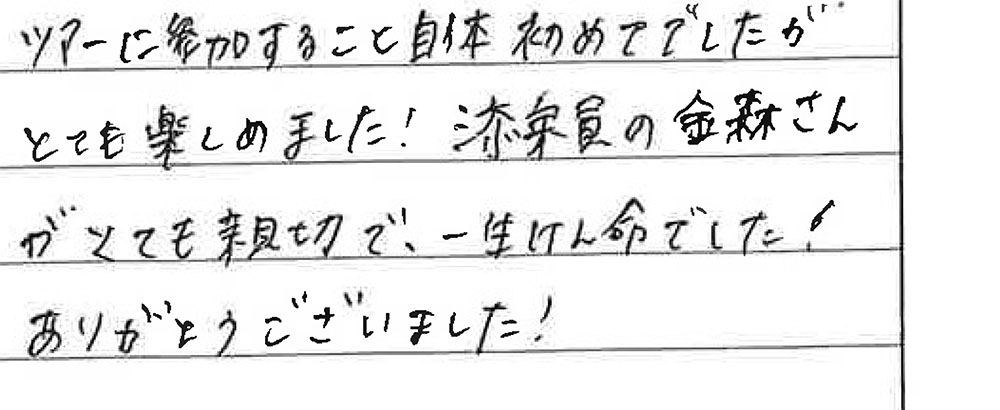 ツアーに参加すること自体初めてでしたが
とても楽しめました!添乗員の金森さん
がとても親切で、一生けん命でした!
ありがとうございました!